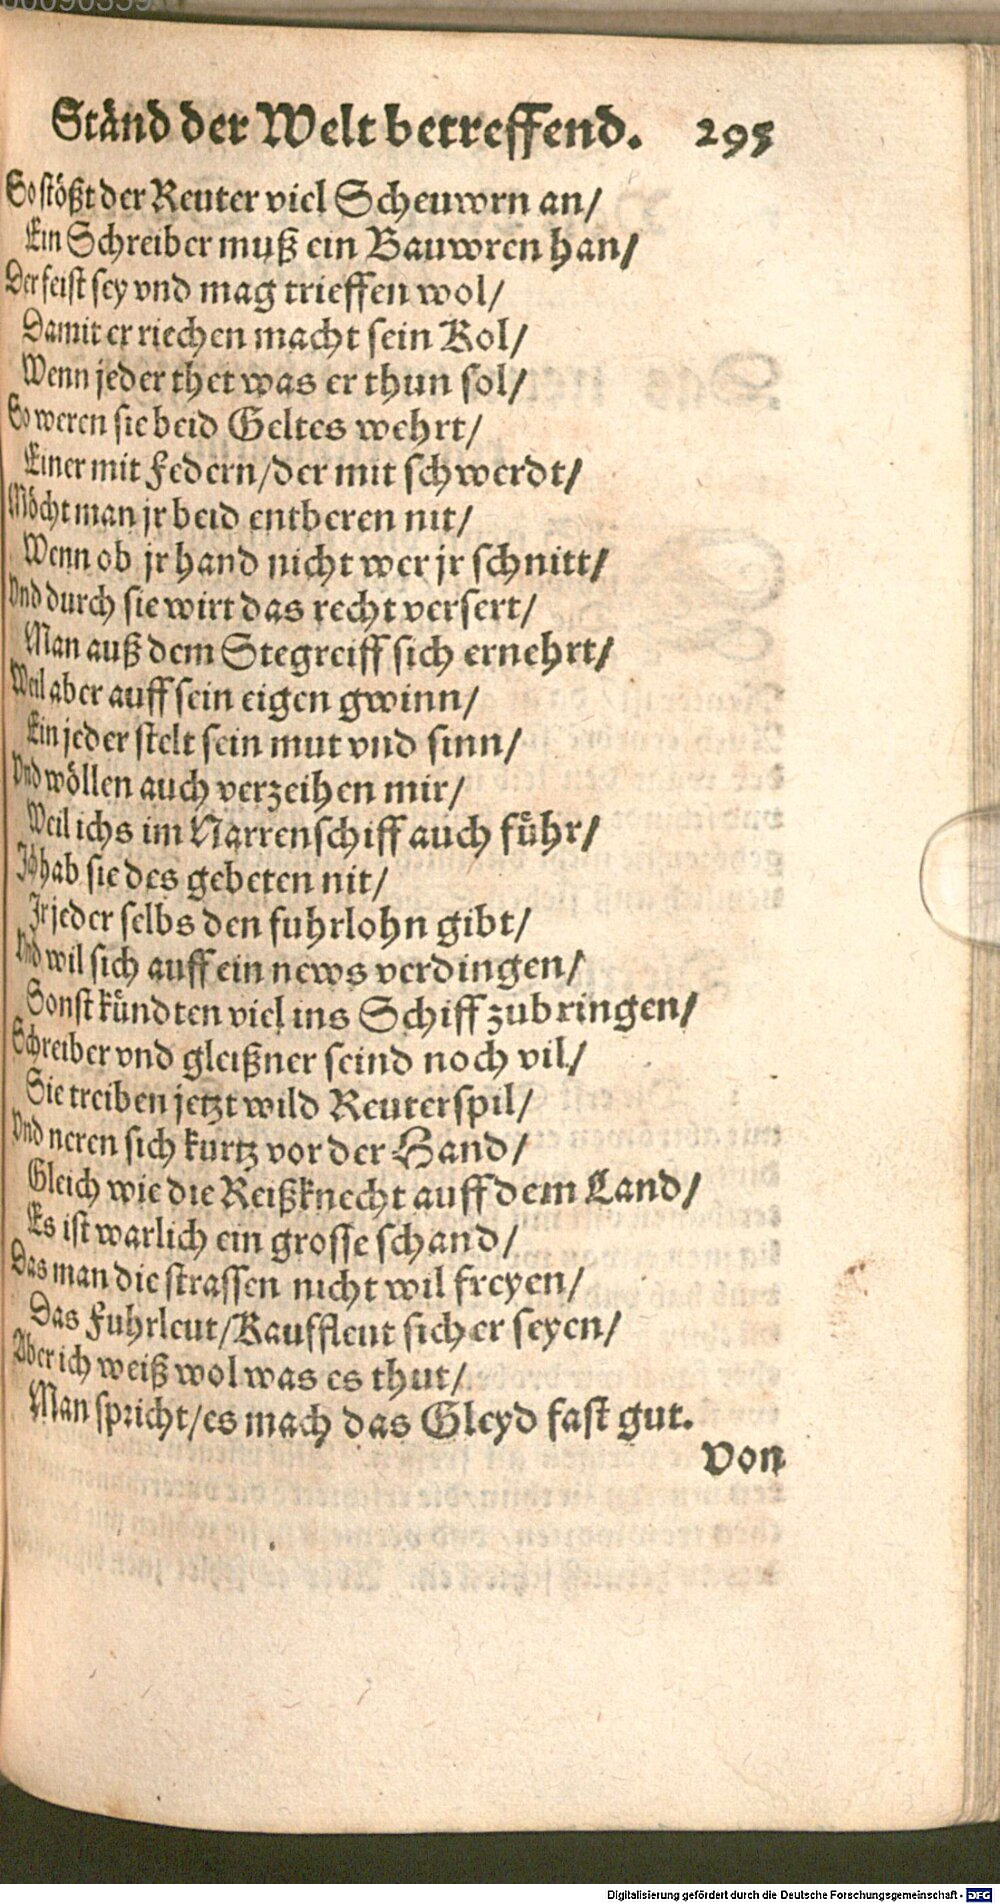 00090339
Ständ der Welt betreffend. 295
So stößt der Reuter viel Scheuwrn an/
Ein Schreiber muß ein Bauwren han/
Der feist sey vnd mag trieffen wol/
Damit er riechen macht sein Kol/
Wenn jeder thet was er thun sol/
So weren sie beid Geltes wehrt/
Einer mit Federn/der mit schwerdt/
Möcht man jr beid entberen nit/
Wenn ob jr hand nicht wer jr schnitt/
Vnd durch sie wirt das recht versert/
Man auß dem Stegreiff sich ernehrt/
Weil aber auff sein eigen gwinn/
Ein jeder stelt sein mut vnd sinn/
Vnd wöllen auch verzeihen mir/
Weil ichs im Narrenschiff auch führ/
Ich hab sie des gebeten nit/
Jr jeder selbs den fuhrlohn gibt/
Vnd wil sich auff ein news verdingen/
Sonst kündten viel ins Schiff zubringen/
Schreiber vnd gleißner seind noch vil/
Sie treiben jetzt wild Reuterspil/
Vnd neren sich kurtz vor der Hand/
Gleich wie die Reißknecht auff dem Land/
Es ist warlich ein grosse schand/
Das man die strassen nicht wil freyen/
Das Fuhrleut/Kauffleut sicher seyen/
Aber ich weiß wol was es thut/
Man spricht/es mach das Gleyd fast gut.
Von
Digitalisierung gefördert durch die Deutsche Forschungsgemeinschaft - DFG